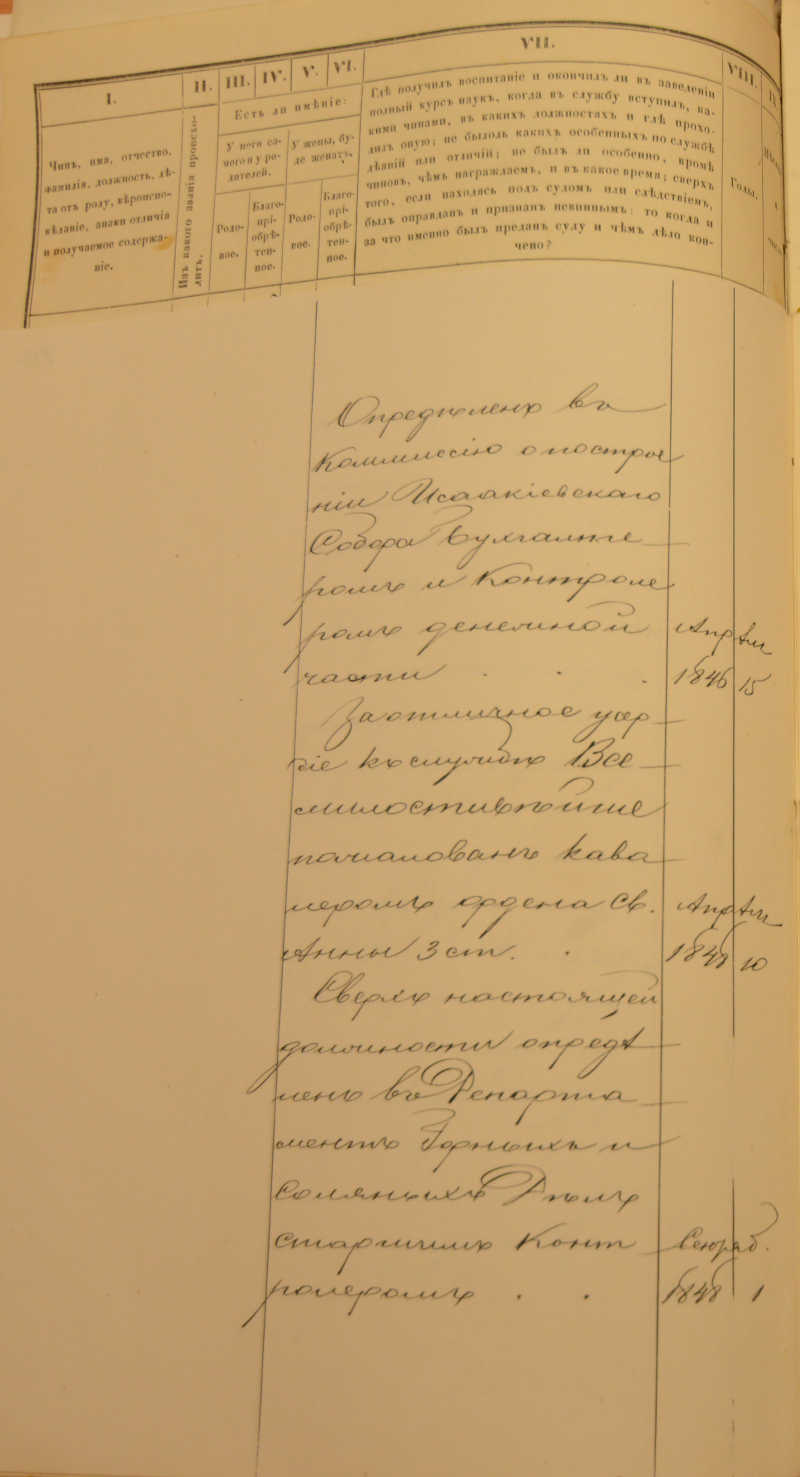 I.
II.
III.
IV.
V.
VI.
VII.
VIII.
Чинъ, имя, отчество,
фамилія, должность, лѣ-
та отъ роду, вѣроиспо-
вѣданіе, знаки отличія
и получаемое содержа-
ніе.
Изъ какого званія происхо-
дитъ.
Есть ли имѣніе:
У него са-
мого и у ро-
дителей.
У жены, бу-
де женатъ.
Родо-
вое.
Благо-
прі-
обрѣ-
тен-
ное.
Родо-
вое.
Благо-
прі-
обрѣ-
тен-
ное.
Гдѣ получилъ воспитаніе и окончилъ ли въ заведеніи
полный курсъ наукъ, когда въ службу вступилъ, ка-
кими чинами, въ какихъ должностяхъ и гдѣ прохо-
дилъ оную; не было ль какихъ особенныхъ по службѣ
дѣяній или отличій; не былъ ли особенно, кромѣ
чиновъ, чѣмъ награждаемъ, и въ какое время; сверхъ
того, если находясь подъ судомъ или слѣдствіемъ,
былъ оправданъ и признанъ невиннымъ: то когда и
за что именно былъ преданъ суду и чѣмъ дѣло кон-
чено?
Годы.
Опредѣленъ въ
Коммиссію о построе
ніи Исаакіевскаго
Собора Бухгалте
ромъ и Контроле
ромъ денежной
части . . .
Апр
1846
15
За отличное усер
діе къ службѣ Все
милостивѣйше
пожалованъ кава
леромъ ордена Св.
Анны 3 ст. .
Апр
1848
10
Сверхъ настоящей
должности опредѣ
ленъ въ Департа
ментъ Горныхъ и
Соляныхъ Дѣлъ
старшимъ Конт
ролеромъ . .
1848
1